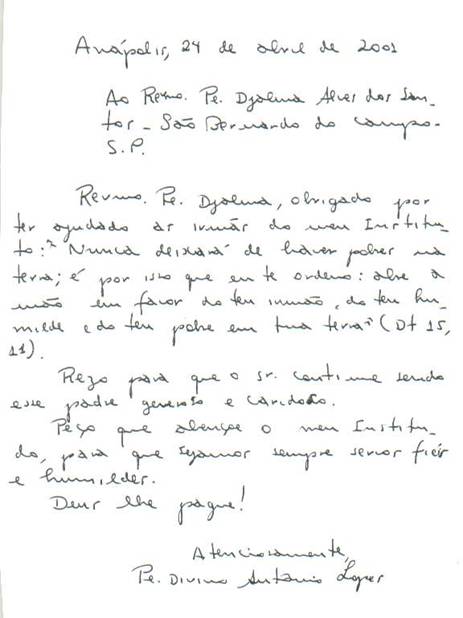 Anápolis, 24 de abril de 2001
Ao Revmo. Pe. Djalma Alves dos San-
tos - São Bernardo do Campo-
S.P.
Revmo. Pe. Djalma, obrigado por
ter ajudado as irmãs do meu Institu-
to: "Nunca deixará de haver pobres na
terra; é por isto que eu te ordeno: abre a
mão em favor do teu irmão, do teu hu-
milde e do teu pobre em tua terra" (Dt 15,
11).
Rezo para que o sr. continue sendo
esse padre generoso e caridoso.
Peço que abençoe o meu Institu-
to, para que sejamos sempre servos fiéis
e humildes.
Deus lhe pague!
Atenciosamente,
Pe. Divino Antônio Lopes